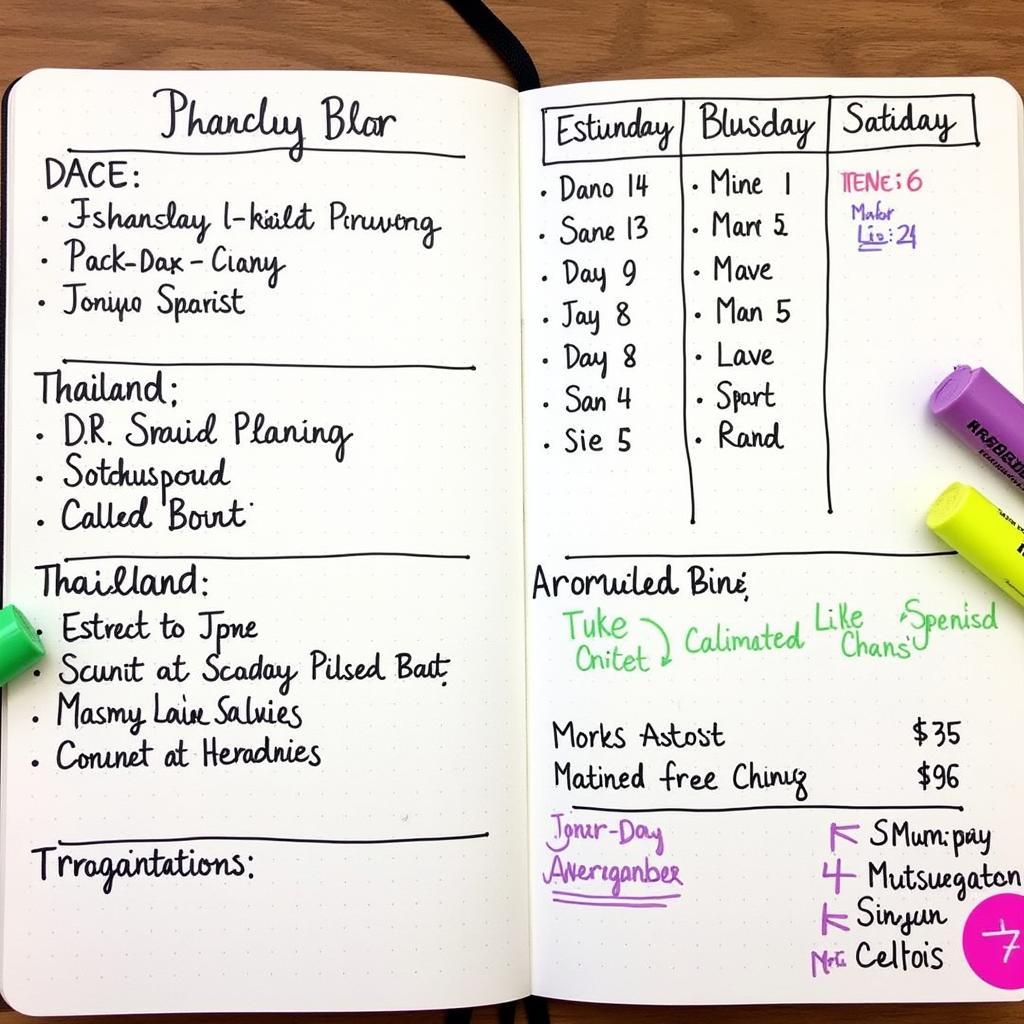 Phancluy Blor
DACE:
• Jshanslay l-kiald Piruvong
• Pack-Dax - Ciany
• Joniyo Sparist
Thailand;
• D.R. Sraiid Planing
• Sotchuspoud
• Called Bount
Thailland:
• Estrect to Jpne
• Scunit at Scaday Pilsed Batt
• Masmy Laiue Salvies
• Conunet at Heradnies
Trrogantations:
Estiunday Blusday Satiday
• Dano 14 • Mine 1 TENE: 6
• Sane 13 • Mart 2 Mabr
Lio: 24
• Day 9 • Mave
• Jay 8 • Man 5
• Day 8 • Lave
• San 4 • Spart
• Sie 5 • Rand
Aromuiled Bine;
Tuke Calimated Like Spenisd
Cnitet Chans
Morks Astost $35
Matined free Chinug $96
Jonur-Day SMum:pay
Averiganber 4 Mutsuegaton
Sinjun
Celtois
7